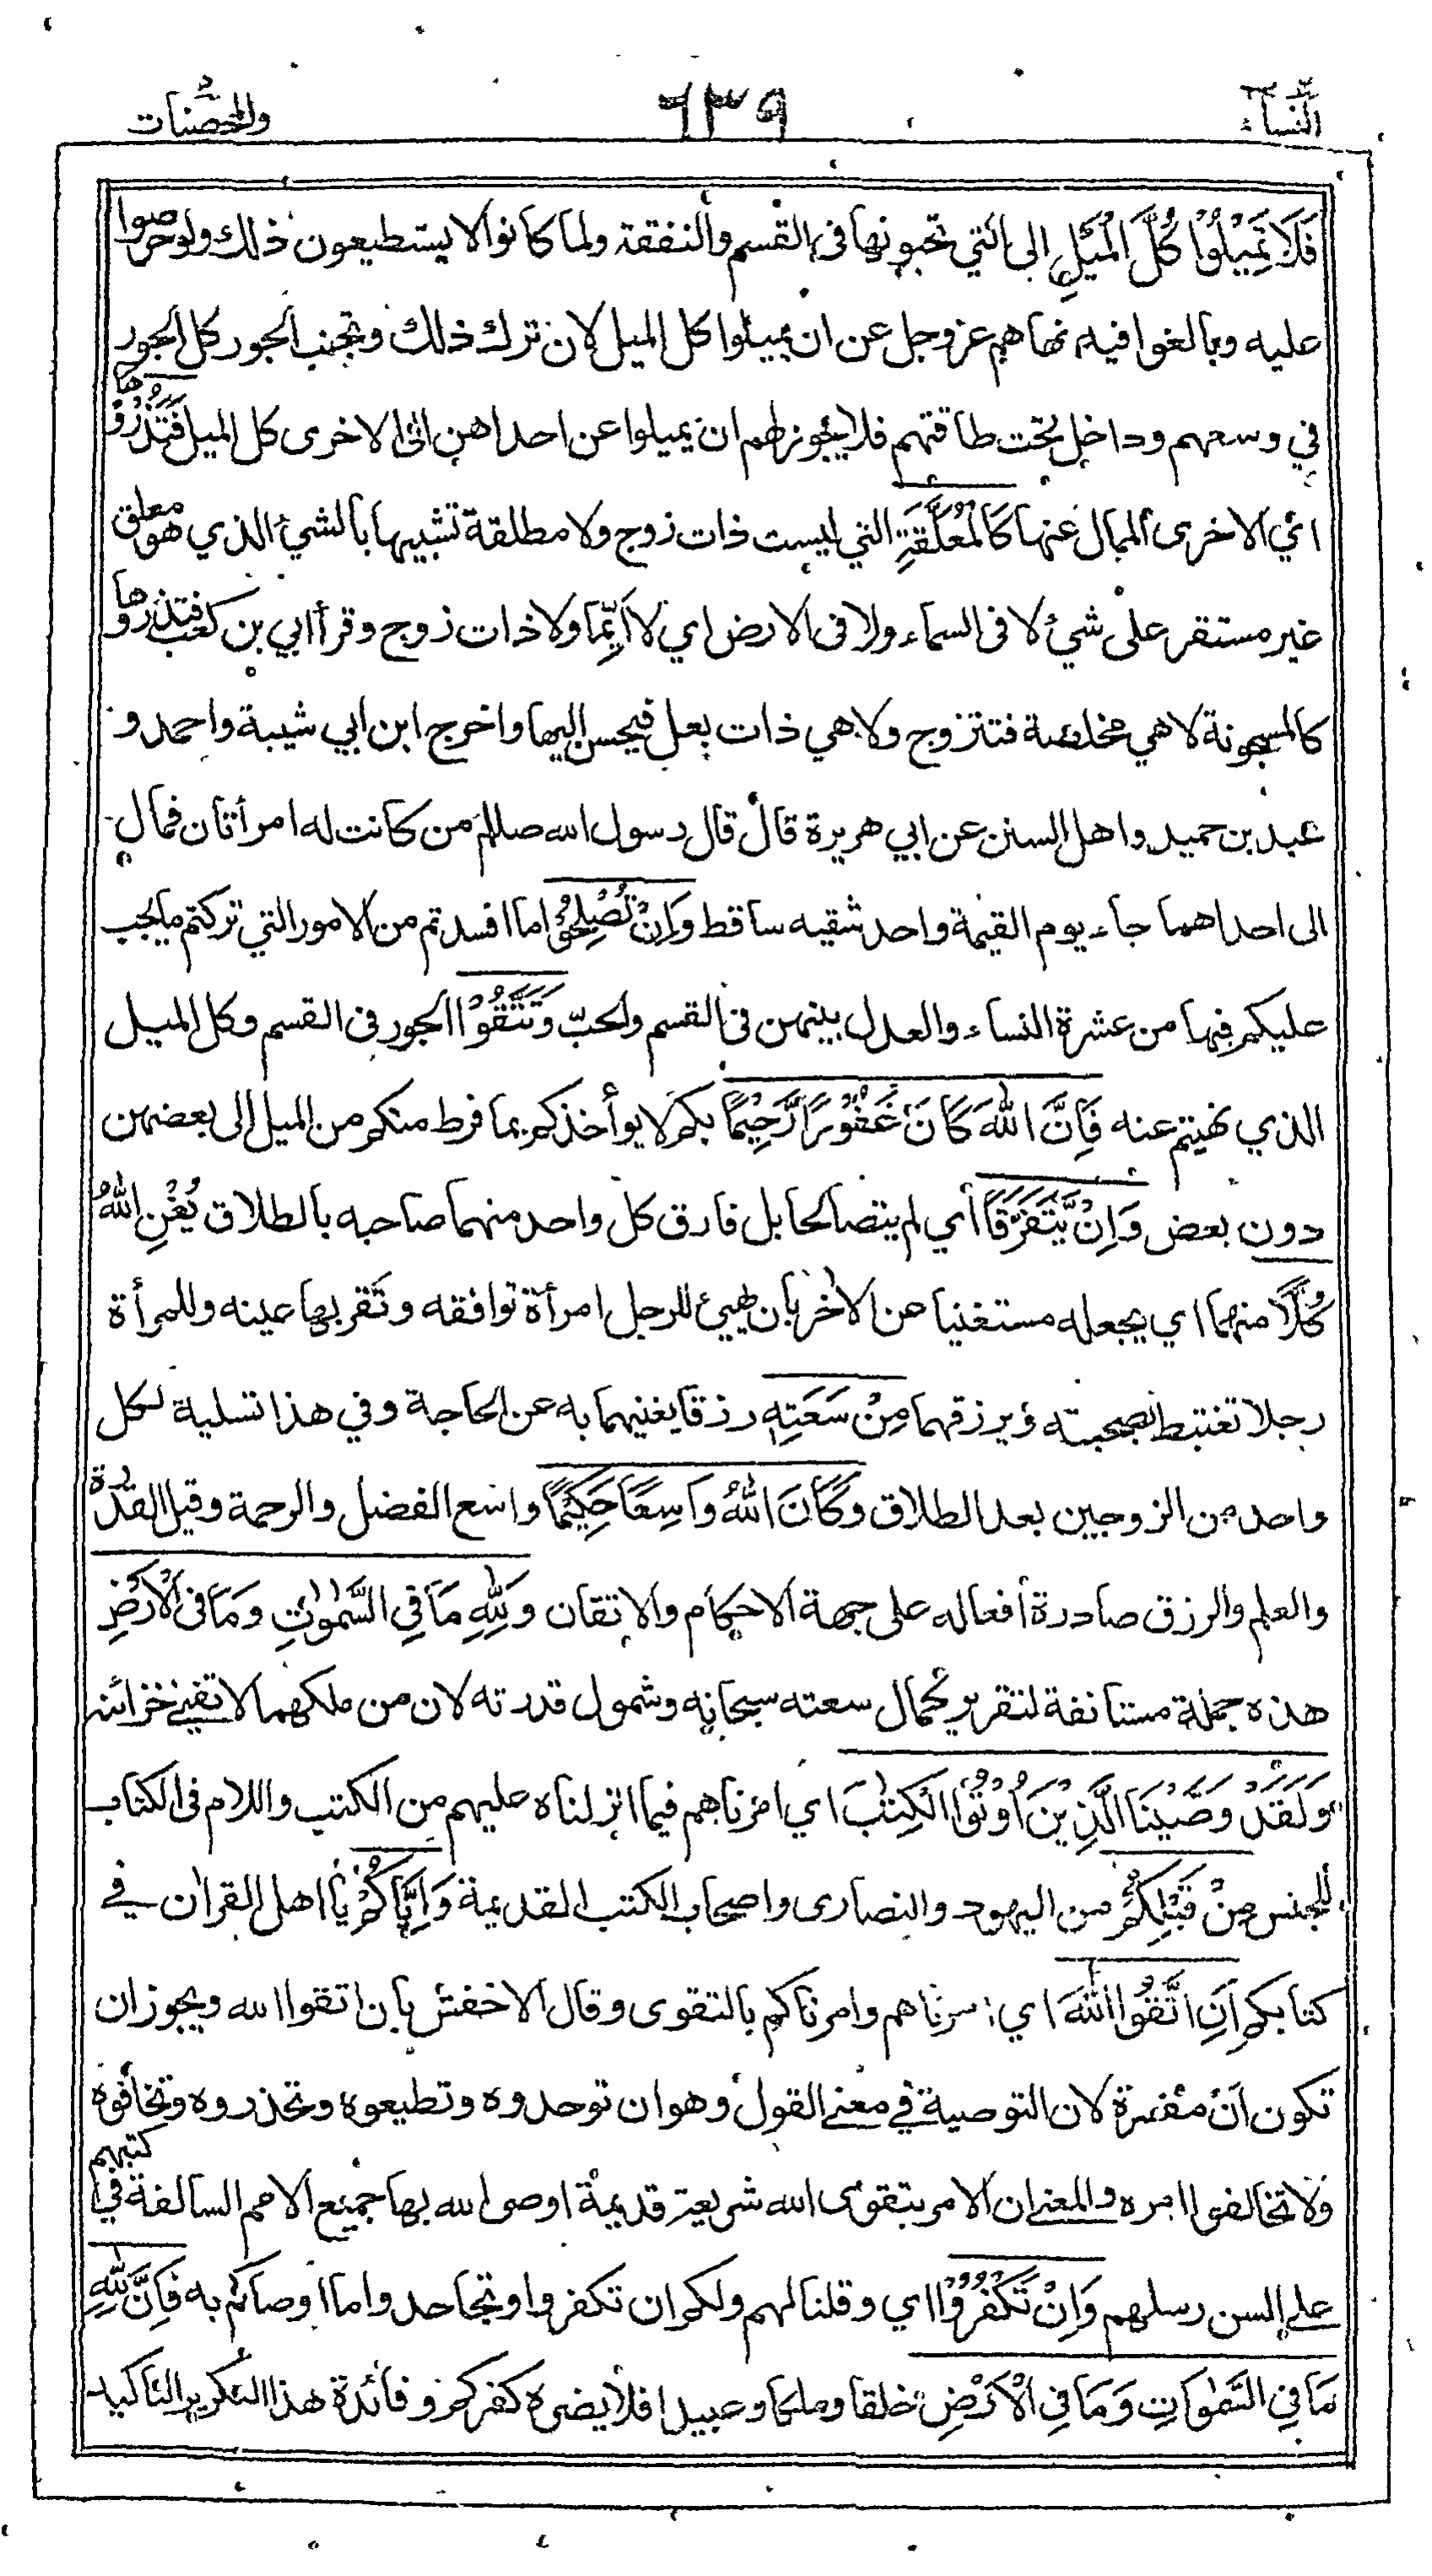 النساء ٦٣٩ والمحصنات
فَلَا تَمِيْلُوْا كُلَّ الْمَيْلِ الى التي تحبونها فى القسم والنفقة ولما كانوا لا يستطيعون ذلك ولو حرصوا
عليه وبالغوا فيه نهاهم عز وجل عن ان يميلوا كل الميل لان ترك ذلك وتجنب الجور كل الجور
في وسعهم وداخل تحت طاقتهم فلا يجوز لهم ان يميلوا عن احداهن الى الاخرى كل الميل فَتَذَرُوْهَا
اي الاخرى الممال عنها كَالْمُعَلَّقَةِ التي ليست ذات زوج ولا مطلقة تشبيها بالشيء الذي هو معلق
غير مستقر على شيء لا فى السماء ولا فى الارض اي لا اَيِّمًا ولا ذات زوج وقرأ ابي بن كعب فتذروها
كالمسجونة لا هي مخلصة فتتزوج ولا هي ذات بعل فيحسن اليها واخرج ابن ابي شيبة واحمد و
عبد بن حميد واهل السنن عن ابي هريرة قال قال رسول الله صللم من كانت له امرأتان فمال
الى احداهما جاء يوم القيمة واحد شقيه ساقط وَاِنْ تُصْلِحُوْا ما افسدتم من الامور التي تركتم ما يجب
عليكم فيها من عشرة النساء والعدل بينهن فى القسم والحبّ وَتَتَّقُوْا الجور فى القسم وكل الميل
الذي نهيتم عنه فَاِنَّ اللّٰهَ كَانَ غَفُوْرًا رَّحِيْمًا بكم لا يوأخذكم بما فرط منكم من الميل الى بعضهن
دون بعض وَاِنْ يَّتَفَرَّقَا أي لم يتصالحا بل فارق كل واحد منهما صاحبه بالطلاق يُغْنِ اللّٰهُ
كُلًّا منهما اي يجعله مستغنيا عن الأخر بان يهيئ للرجل امرأة توافقه وتقر بها عينه وللمرأة
رجلا تغتبط بصحبته ويرزقهما مِنْ سَعَتِهٖ رزقا يغنيهما به عن الحاجة وفي هذا تسلية لكل
واحد من الزوجين بعد الطلاق وَكَانَ اللّٰهُ وَاسِعًا حَكِيْمًا واسع الفضل والرحمة وقيل القدرة
والعلم والرزق صادرة أفعاله على جهة الاحكام والاتقان وَلِلّٰهِ مَا فِي السَّمٰوٰتِ وَمَا فِى الْاَرْضِ
هذه جملة مستانفة لتقرير كمال سعته سبحانه وشمول قدرته لان من ملكهما لا تفنى خزائنه
وَلَقَدْ وَصَّيْنَا الَّذِيْنَ اُوْتُوا الْكِتٰبَ اي امرناهم فيما انزلناه عليهم من الكتب واللام فى الكتاب
للجنس مِنْ قَبْلِكُمْ من اليهود والنصارى واصحاب الكتب القديمة وَاِيَّاكُمْ يا اهل القرأن في
كتابكم اَنِ اتَّقُوا اللّٰهَ اي امرناهم وامرناكم بالتقوى وقال الاخفش بان اتقوا الله ويجوز ان
تكون اَنْ مفسرة لان التوصية في معنى القول وهو ان توحدوه وتطيعوه وتحذروه وتخافوه
ولا تخالفوا امره والمعنى ان الامر بتقوى الله شريعة قديمة اوصى الله بها جميع الامم السالفة في كتبهم
على السن رسلهم وَاِنْ تَكْفُرُوْا اي وقلنا لهم ولكم ان تكفروا وتجاحدوا ما اوصاكم به فَاِنَّ لِلّٰهِ
مَا فِي السَّمٰوَاتِ وَمَا فِي الْاَرْضِ خلقا وملكا وعبيدا فلا يضره كفركم وفائدة هذا التكرير التاكيد